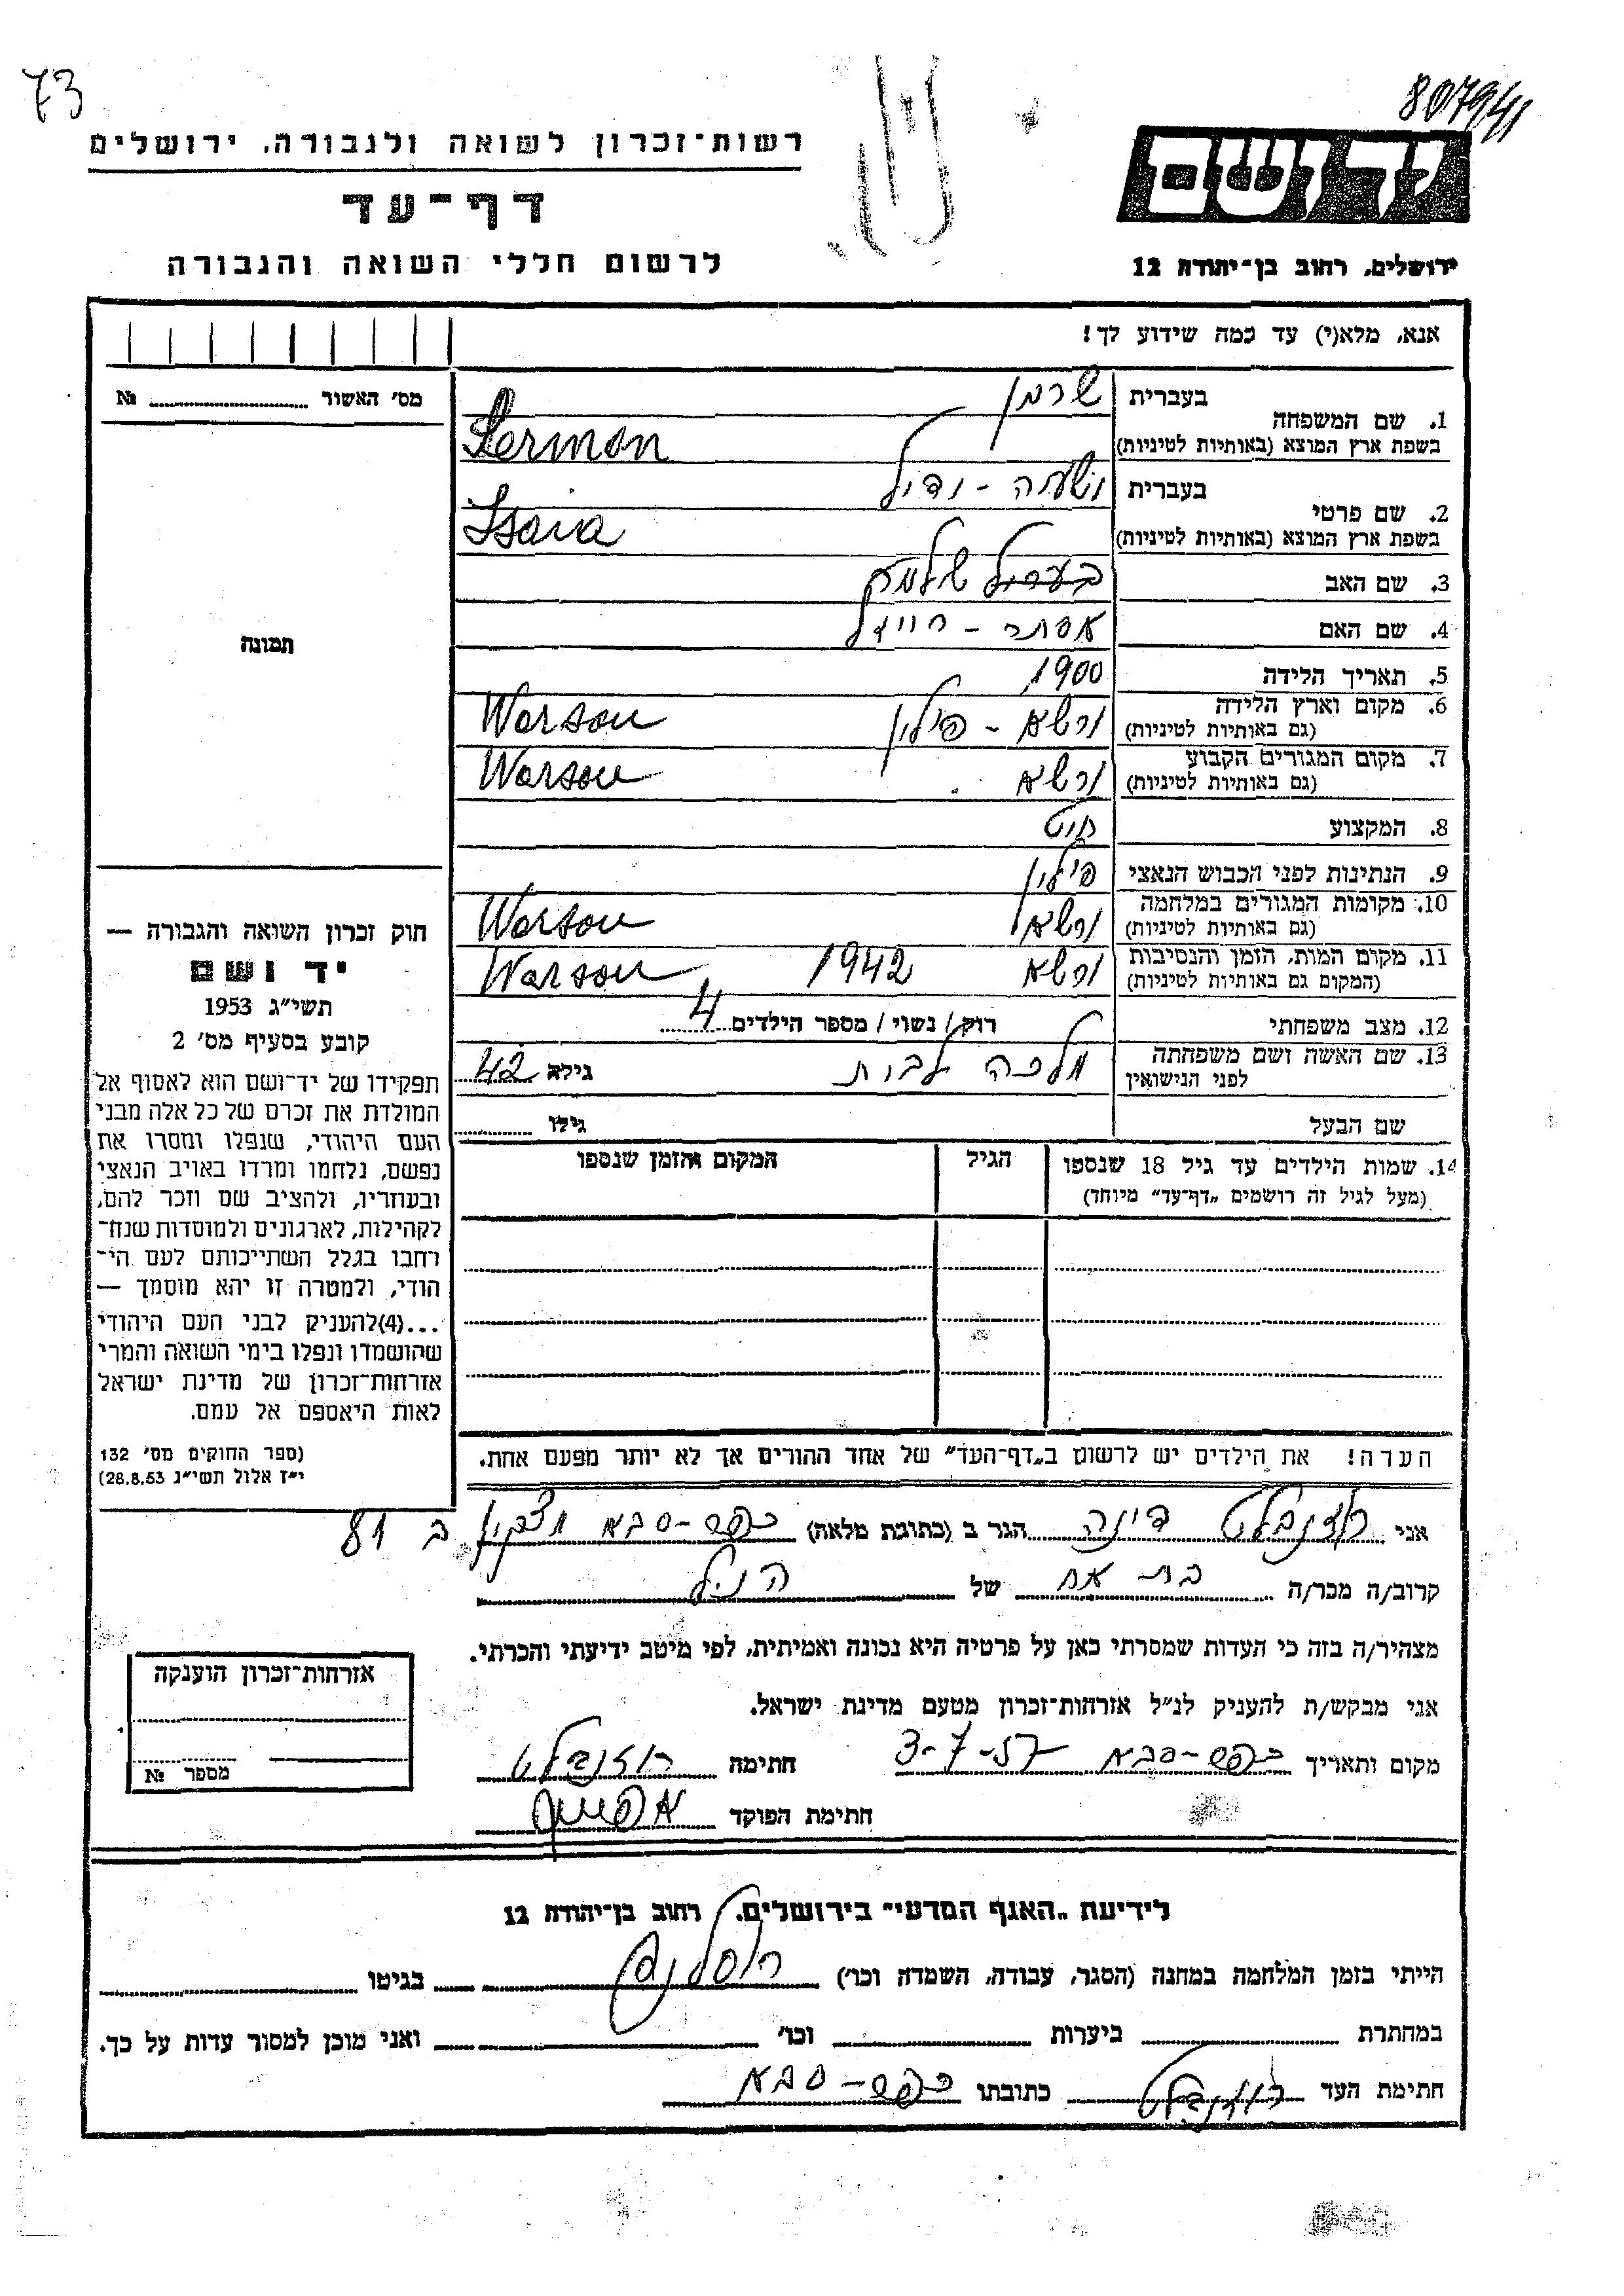 73
807941
רשות-זכרון לשואה ולגבורה, ירושלים
דף-עד
לרשום חללי השואה והגבורה
יד ושם
ירושלים, רחוב בן-יהודה 12
אנא, מלא(י) עד כמה שידוע לך!
מס' האשור № 
תמונה
חוק זכרון השואה והגבורה —
יד ושם
תשי"ג 1953
קובע בסעיף מס' 2
תפקידו של יד-ושם הוא לאסוף אל
המולדת את זכרם של כל אלה מבני
העם היהודי, שנפלו ומסרו את
נפשם, נלחמו ומרדו באויב הנאצי
ובעוזריו, ולהציב שם וזכר להם,
לקהילות, לארגונים ולמוסדות שנח-
רבו בגלל השתייכותם לעם הי-
הודי, ולמטרה זו יהא מוסמך —
...(4)להעניק לבני העם היהודי
שהושמדו ונפלו בימי השואה והמרי
אזרחות-זכרון של מדינת ישראל
לאות היאספם אל עמם.
(ספר החוקים מס' 132
י"ז אלול תשי"ג 28.8.53)
1. שם המשפחה
בעברית שרמן
בשפת ארץ המוצא (באותיות לטיניות) Serman
2. שם פרטי
בעברית ישעיה -
בשפת ארץ המוצא (באותיות לטיניות) Isaia
3. שם האב
4. שם האם אסתר -
5. תאריך הלידה 1900
6. מקום וארץ הלידה ורשא - פולין Warsau
(גם באותיות לטיניות)
7. מקום המגורים הקבוע ורשא Warsau
(גם באותיות לטיניות)
8. המקצוע חיט
9. הנתינות לפני הכבוש הנאצי פולין
10. מקומות המגורים במלחמה ורשא Warsau
(גם באותיות לטיניות)
11. מקום המות, הזמן והנסיבות ורשא 1942 Warsau
(המקום גם באותיות לטיניות)
12. מצב משפחתי רוק / נשוי / מספר הילדים 4
13. שם האשה ושם משפחתה מלכה גילה 42
לפני הנישואין
שם הבעל גילו
14. שמות הילדים עד גיל 18 שנספו הגיל המקום והזמן שנספו
(מעל לגיל זה רושמים „דף-עד" מיוחד)
הערה! את הילדים יש לרשום ב„דף-העד" של אחד ההורים אך לא יותר מפעם אחת.
אני רוזנבלט דינה הגר ב (כתובת מלאה) כפר-סבא ב 81
קרוב/ה מכר/ה בת אח של הנ"ל
מצהיר/ה בזה כי העדות שמסרתי כאן על פרטיה היא נכונה ואמיתית, לפי מיטב ידיעתי והכרתי.
אני מבקש/ת להעניק לנ"ל אזרחות-זכרון מטעם מדינת ישראל.
מקום ותאריך כפר-סבא 3-7-57 חתימה רוזנבלט
חתימת הפוקד
אזרחות-זכרון הוענקה
מספר №
לידיעת „האגף המדעי" בירושלים, רחוב בן-יהודה 12
הייתי בזמן המלחמה במחנה (הסגר, עבודה, השמדה וכו') בגיטו
במחתרת ביערות וכו' ואני מוכן למסור עדות על כך.
חתימת העד רוזנבלט כתובתו כפר-סבא